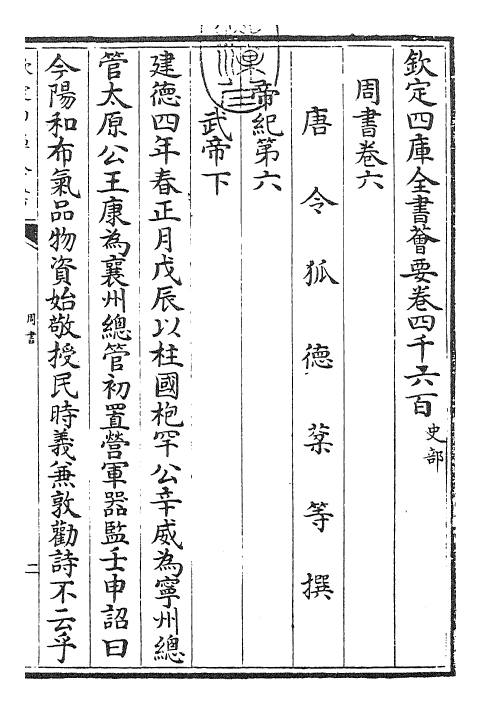 欽定四庫全書薈要卷四千六百 史部
周書卷六
唐令狐德棻等撰
帝紀第六
武帝下
建德四年春正月戊辰以柱國枹罕公辛威為寧州總
管太原公王康為襄州總管初置營軍器監壬申詔曰
今陽和布氣品物資始敬授民時義兼敦勸詩不云乎
周書
二